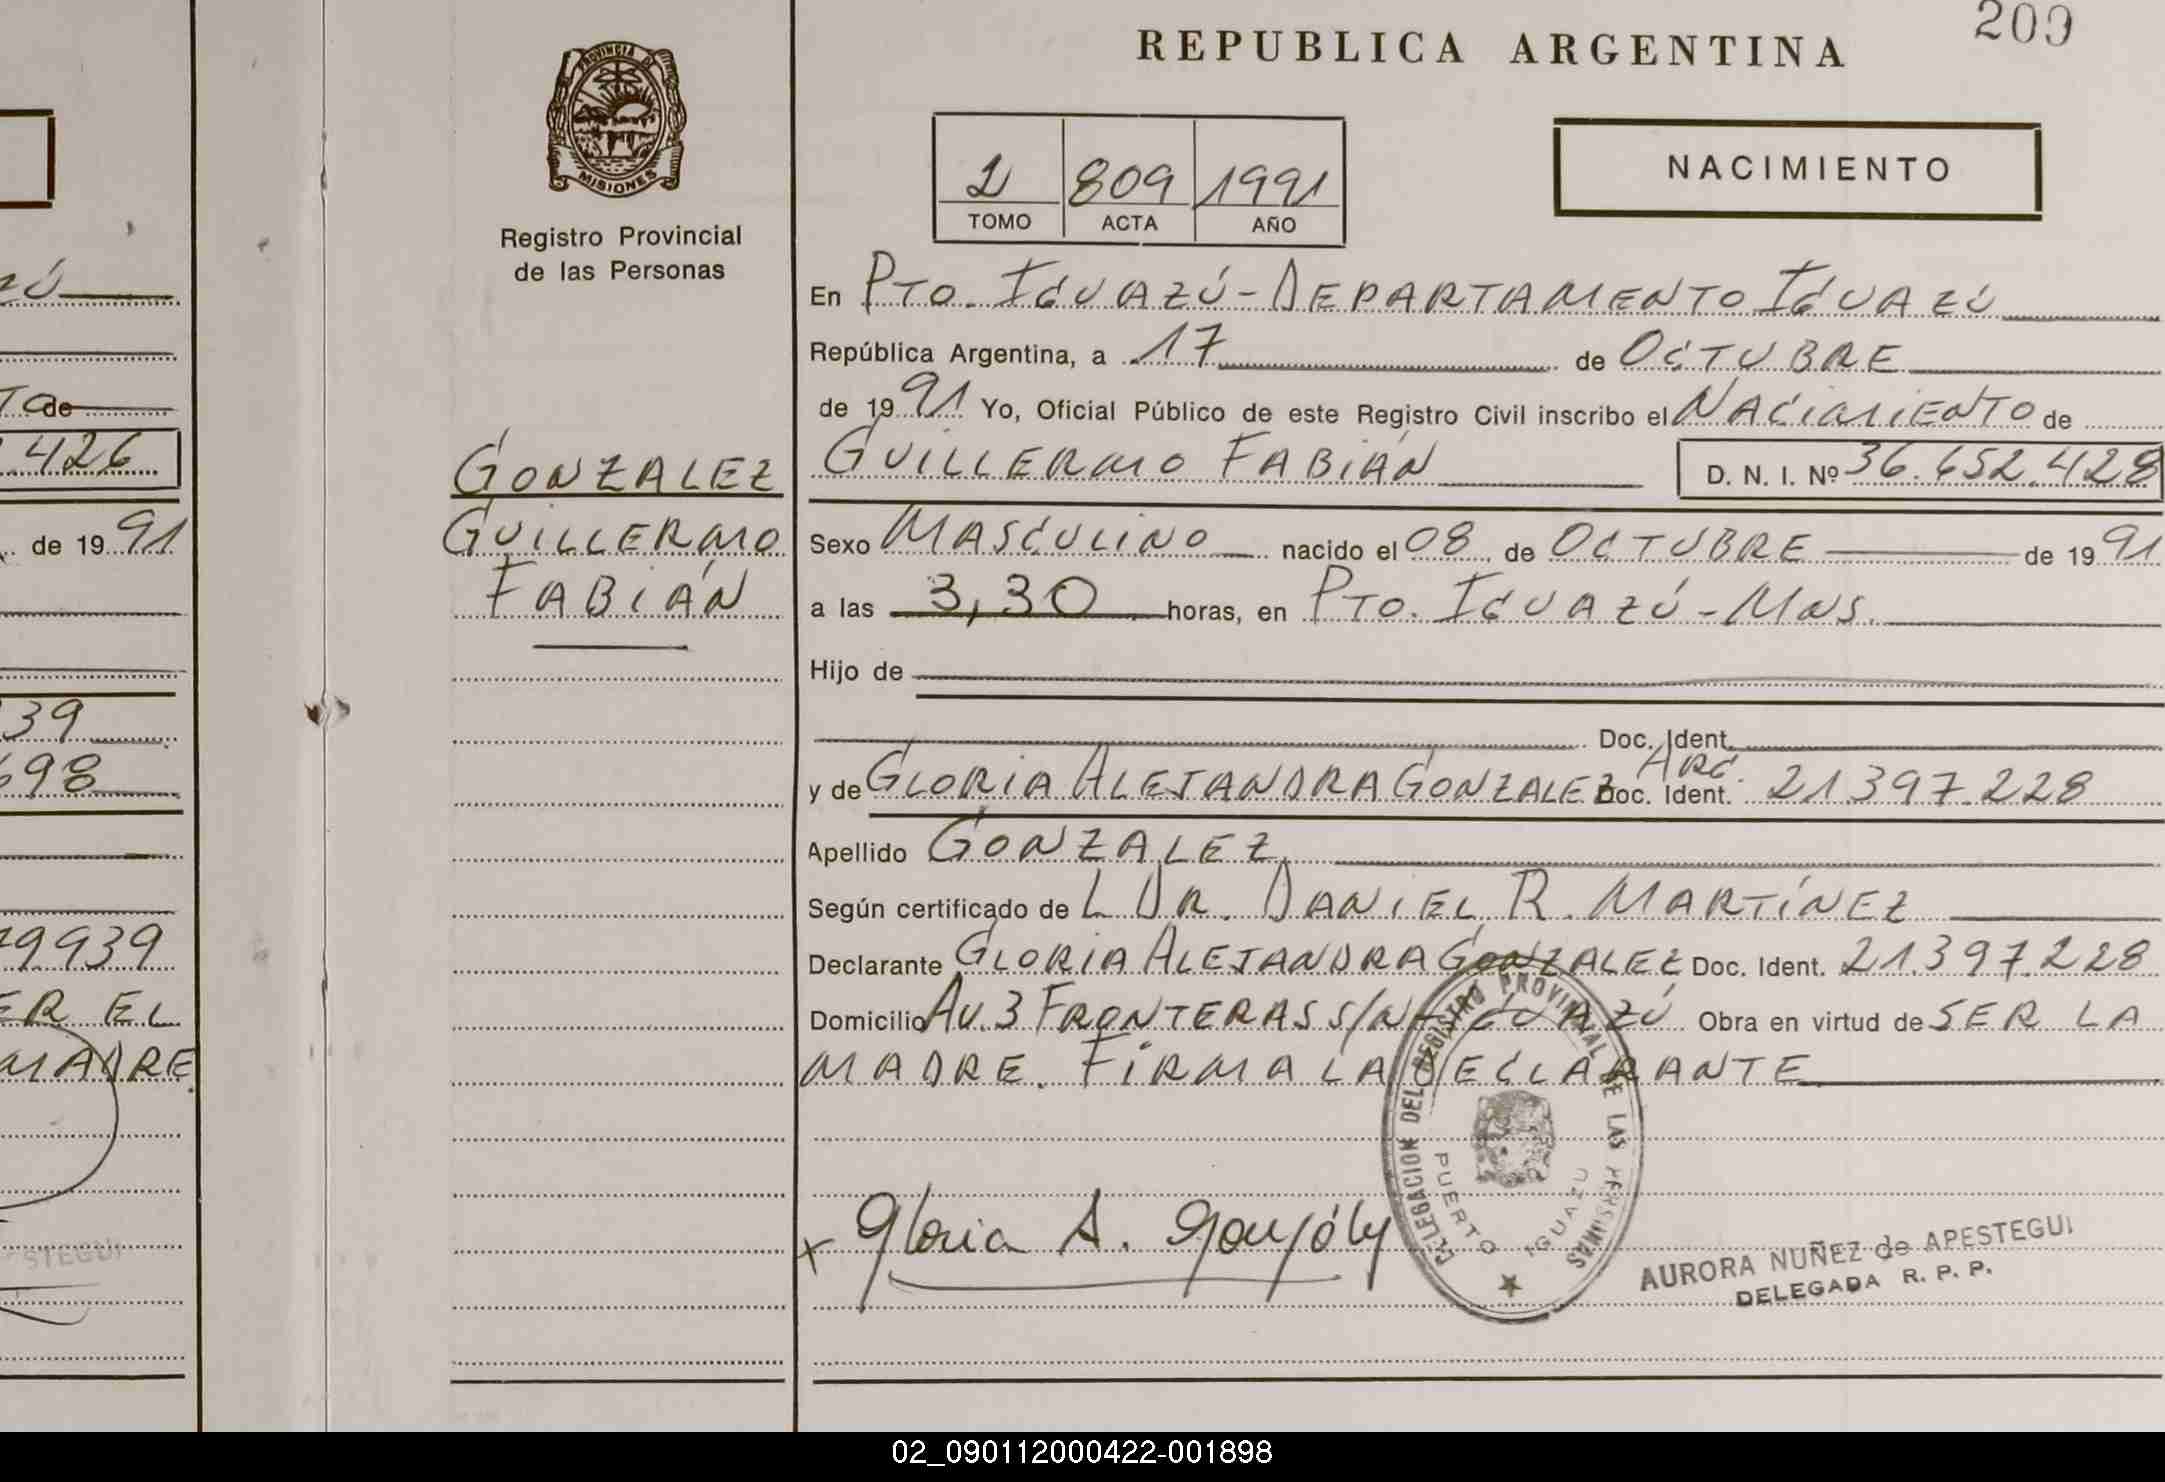 REPUBLICA ARGENTINA
209
PROVINCIA DE
MISIONES
Registro Provincial
de las Personas
2 809 1991
TOMO ACTA AÑO
NACIMIENTO
En PTO. IGUAZÚ - DEPARTAMENTO IGUAZÚ
República Argentina, a 17 de OCTUBRE
de 1991 Yo, Oficial Público de este Registro Civil inscribo el NACIMIENTO de
GUILLERMO FABIÁN D. N. I. Nº 36.652.428
GONZALEZ
GUILLERMO
FABIÁN
Sexo MASCULINO nacido el 08 de OCTUBRE de 1991
a las 3,30 horas, en PTO. IGUAZÚ - MNS.
Hijo de
Doc. Ident.
ARG.
y de GLORIA ALEJANDRA GONZALEZ Doc. Ident. 21.397.228
Apellido GONZALEZ
Según certificado de L DR. DANIEL R. MARTÍNEZ
Declarante GLORIA ALEJANDRA GONZALEZ Doc. Ident. 21.397.228
Domicilio AV. 3 FRONTERAS S/N - IGUAZÚ Obra en virtud de SER LA
MADRE. FIRMA LA DECLARANTE
x Gloria A. González
DELEGACION DEL REGISTRO PROVINCIAL DE LAS PERSONAS
PUERTO IGUAZU
AURORA NUÑEZ de APESTEGUI
DELEGADA R. P. P.
ZÚ
TO de
.426
de 1991
39
698
79939
ER EL
MADRE.
STEGUI
02_090112000422-001898